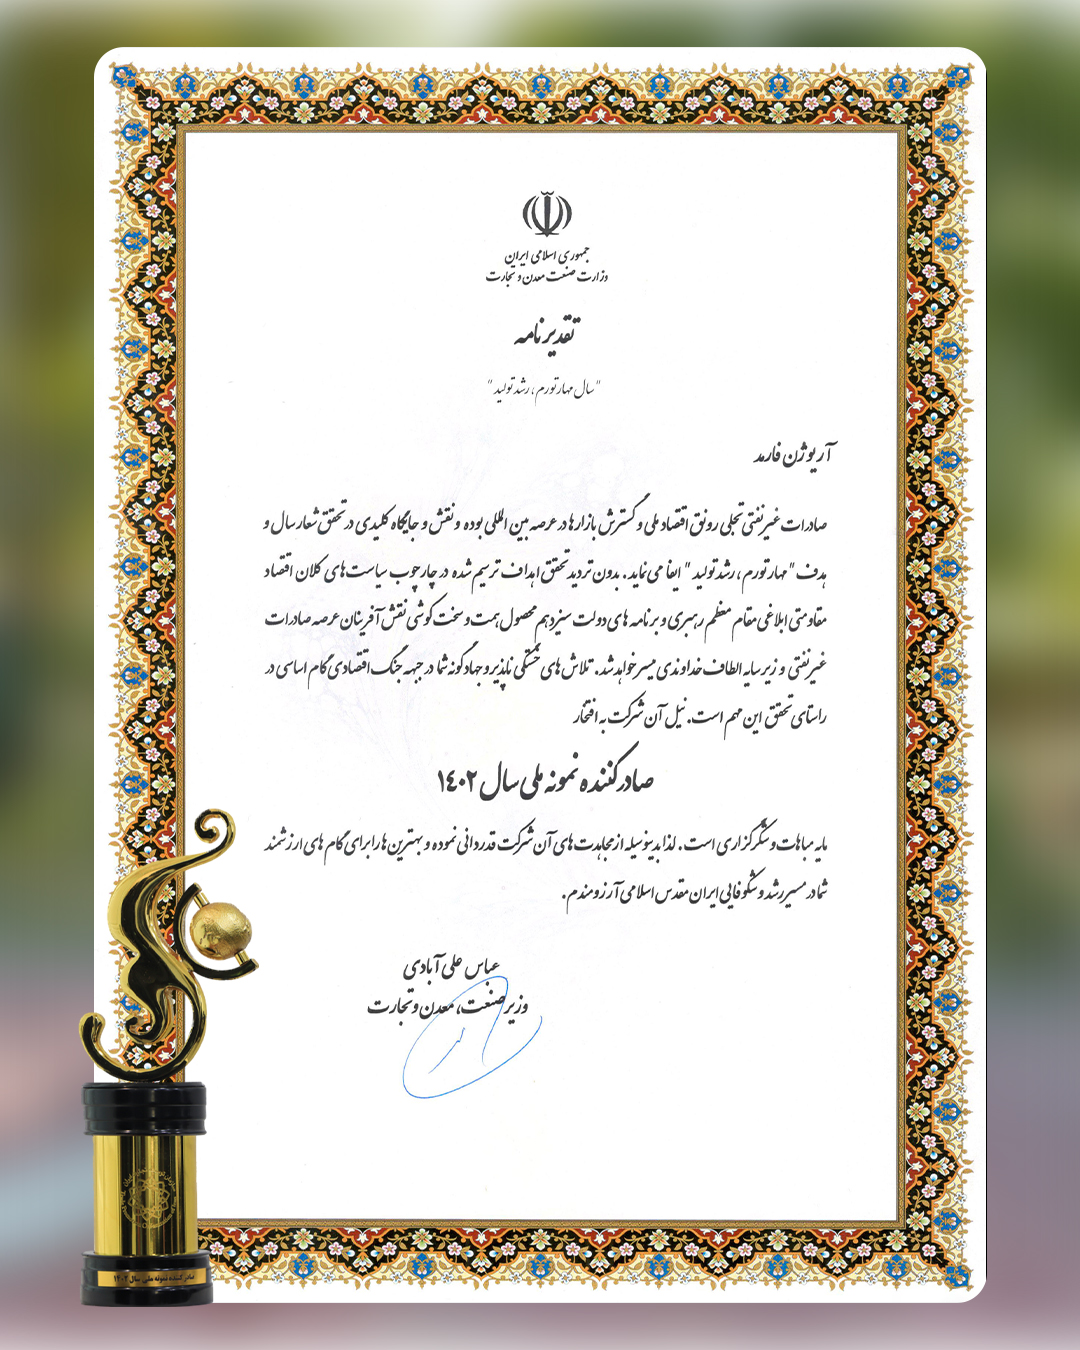 جمهوری اسلامی ایران
وزارت صنعت معدن و تجارت
تقدیرنامه
"سال مهار تورم، رشد تولید"
آریوژن فارمد
صادرات غیرنفتی تجلی رونق اقتصاد ملی و گسترش بازارها در عرصه بین المللی بوده و نقش و جایگاه کلیدی در تحقق شعار سال و
هدف "مهار تورم، رشد تولید" ایفا می نماید. بدون تردید تحقق اهداف ترسیم شده در چارچوب سیاست های کلان اقتصاد
مقاومتی ابلاغی مقام معظم رهبری و برنامه های دولت سیزدهم محصول همت و سخت کوشی نقش آفرینان عرصه صادرات
غیرنفتی و زیر سایه الطاف خداوندی میسر خواهد شد. تلاش های خستگی ناپذیر و جهادگونه شما در جبهه جنگ اقتصادی گام اساسی در
راستای تحقق این مهم است. نیل آن شرکت به افتخار
صادرکننده نمونه ملی سال ۱۴۰۲
مایه مباهات و شکرگزاری است. لذا بدینوسیله از مجاهدت های آن شرکت قدردانی نموده و بهترین ها را برای گام های ارزشمند
شما در مسیر رشد و شکوفایی ایران مقدس اسلامی آرزومندم.
عباس علی آبادی
وزیر صنعت، معدن و تجارت
صادر کننده نمونه ملی سال ۱۴۰۲